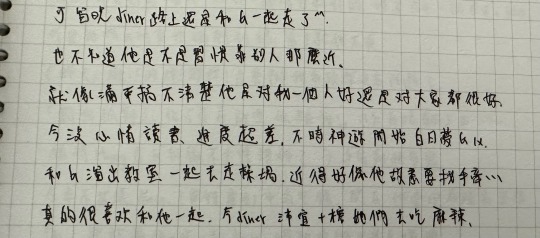 可當晚 diner 路上還是和 h 一起走了~.
也不知道他是不是習慣靠別人那麼近、
就像搞不清楚他是對我一個人好還是對大家都很好.
今沒心情讀書、進度超差,不時神遊開始白日夢 h ix.
和 h 溜出教室一起去走操場、近得好像他故意要我手牽…
真的很喜歡和他一起、今 diner 沛宣+棋她們去吃麻辣、